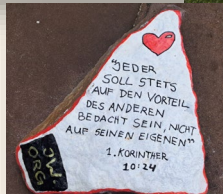 "JEDER
SOLL STETS
AUF DEN VORTEIL
DES ANDEREN
BEDACHT SEIN, NICHT
AUF SEINEN EIGENEN"
1. KORINTHER
10:24
JW
ORG